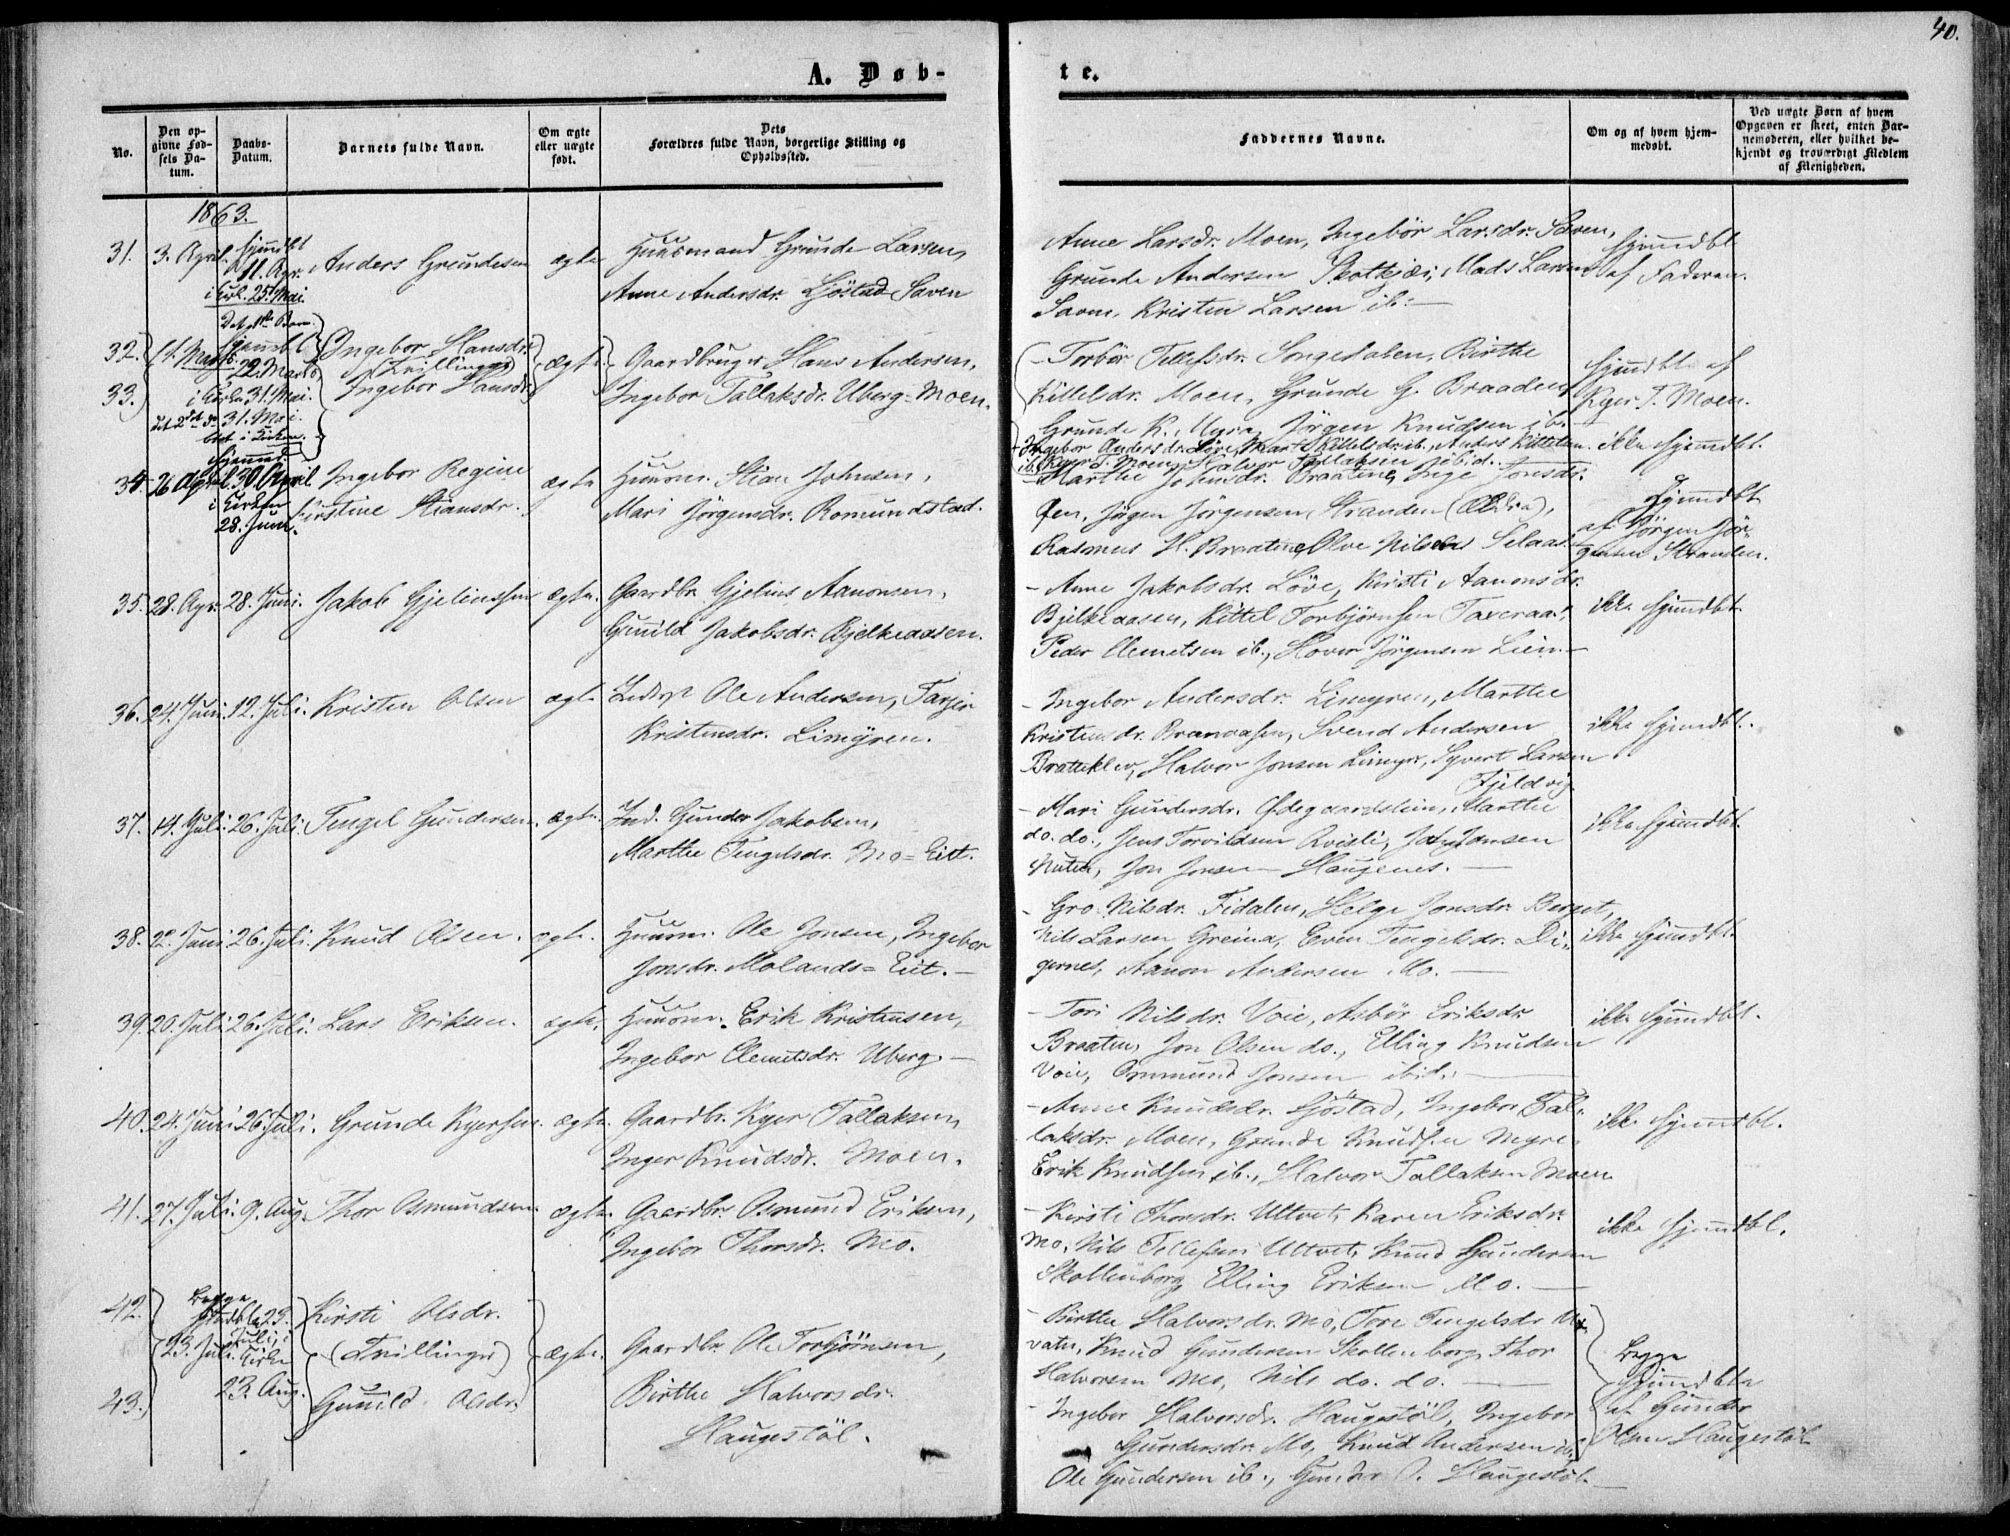 40.
A. Døb-
te.
No.
Den op-
givne Fød-
sels Da-
tum.
Daabs-
Datum.
Barnets fulde Navn.
Om ægte
eller uægte
født.
Dets
Forældres fulde Navn, borgerlige Stilling og
Opholdssted.
Faddernes Navne.
Om og af hvem hjem-
medøbt.
Ved uægte Børn af hvem
Opgaven er skeet, enten Bar-
nemoderen, eller hvilket be-
kjendt og troværdigt Medlem
af Menigheden.
1863.
31. 3. April. Hjemdbt 11. Apr. i Kirk. 25. Mai. Anders Grundesen ægte Huusmand Grunde Larsen,
Anne Andersdr. Ljøstad Saven
Anne Larsdr. Moen, Ingebør Larsdr. Saven,
Grunde Andersen Skotkjær, Mads Larsen
Saven, Kristen Larsen ib.
Hjemdbt
af Faderen.
32. 14. Marts. Det 1ste Barn hjemdbt 22. Marts i Kirken 31. Mai. Ingebor Hansdr.
(Tvillinger)
33. det 2det do 31. Mai. dbt i Kirken. Ingebor Hansdr.
ægte. Gaardbruger Hans Andersen,
Ingebor Tallaksdr. Uberg-Moen.
Torbør Tellefsdr. Songedalen, Birthe
Kittelsdr. Moen, Grunde G. Braaden,
Grunde K. Myre, Jørgen Knudsen ib.
Hjemdbt af
Kyer T. Moen.
Ingebor Andersdr. Løve, Mart Kittelsdr. ib., Anders Kittelsen
ib. Kyer T. Moen, Halvor Tallaksen ibid.
ikke hjemdbt.
34. 26 April. hjemmed. 30. April i Kirken 28. Juni. Ingebor Regine
Kirstine Stiansdr. ægte Huusm. Stian Johnsen,
Mari Jørgensdr. Romundstad.
Marthe Johnsdr. Braaten, Inge Jonsdr.
Øen, Jørgen Jørgensen Stranden (Ældre),
Rasmus H. Braaten, Olve Nilsen Selaas.
Hjemdbt
af Jørgen Jør-
gensen Stranden.
35. 28. Apr. 28. Juni. Jakob Gjeliussen ægte. Gaardbr. Gjelius Aanonsen,
Gunild Jakobsdr. Bjelkeaasen.
Anne Jakobsdr. Løve, Kirsti Aanonsdr.
Bjelkeaasen, Kittel Torbjørnsen Taxeraas,
Peder Clemetsen ib., Hover Jørgensen Lien.
ikke hjemdbt.
36. 24. Juni. 12. Juli. Kristen Olsen ægte Inderst Ole Andersen, Tarjer
Kristensdr. Limyren.
Ingebor Andersdr. Limyren, Marthe
Kristensdr. Branaasen, Svend Andersen
Bratteklev, Halvor Jonsen Limyr, Syvert Larsen
Fjeldvig
ikke hjemdbt.
37. 14. Juli. 26. Juli. Tengel Gundersen. ægte. Ind. Gunder Jakobsen,
Marthe Tengelsdr. Mo-Eiet.
Mari Gundersdr. Ødegaardslien, Marthe
do. do., Jens Torvildsen Qvisli, Jonsen
Nuten, Jon Jonsen Haugenes.
ikke hjemdbt.
38. 22. Juni 26. Juli. Knud Olsen. ægte. Huusm. Ole Jonsen, Ingebor
Jonsdr. Molands-Eiet.
Gro Nilsdr. Fidalen, Helge Jonsdr. Berget,
Nils Larsen Greina, Even Tengelsdr. Di-
gernes, Aanon Andersen Mo.
ikke hjemdbt.
39. 20. Juli 26. Juli. Lars Eriksen. ægte. Huusm. Erik Kristensen,
Ingebor Clemetsdr. Uberg.
Tori Nilsdr. Voie, Asbør Eriksdr.
Braaten, Jon Olsen do., Elling Knudsen
Voie, Ommund Jonsen ibid.
ikke hjemdbt.
40. 24. Juni 26. Juli. Grunde Kyersen. ægte. Gaardbr. Kyer Tallaksen,
Inger Knudsdr. Moen.
Anne Knudsdr. Ljøstad, Ingebor Tal-
laksdr. Moen, Grunde Knudsen Myre,
Erik Knudsen ib., Halvor Tallaksen Moen
ikke hjemdbt.
41. 27. Juli. 9. Aug. Thor Osmundsen. ægte. Gaardbr. Osmund Eriksen,
Ingebor Thorsdr. Mo.
Kirsti Thorsdr. Ultvet, Karen Eriksdr.
Mo, Nils Tellefsen Ultvet, Knud Gundersen
Skollenborg, Elling Eriksen Mo.
ikke hjemdbt.
42. 23. Juli. Begge hjemdbte 23. Juli, i Kirke 23. Aug. Kirsti Olsdr.
(Tvillinger)
43. Gunild Olsdr.
ægte. Gaardbr. Ole Torbjørnsen,
Birthe Halvorsdr.
Haugestøl.
Birthe Halvorsdr. Mo, Tore Tengelsdr.
vatn, Knud Gundersen Skollenborg, Thor
Halvorsen Mo, Nils do. do.
Ingebor Halvorsdr. Haugestøl, Ingebor
Gundersdr. Mo, Knud Andersen ib.
Ole Gundersen ib., Gunder O. Haugestøl.
Begge
hjemdbte
af Gunder
Olsen Haugestøl